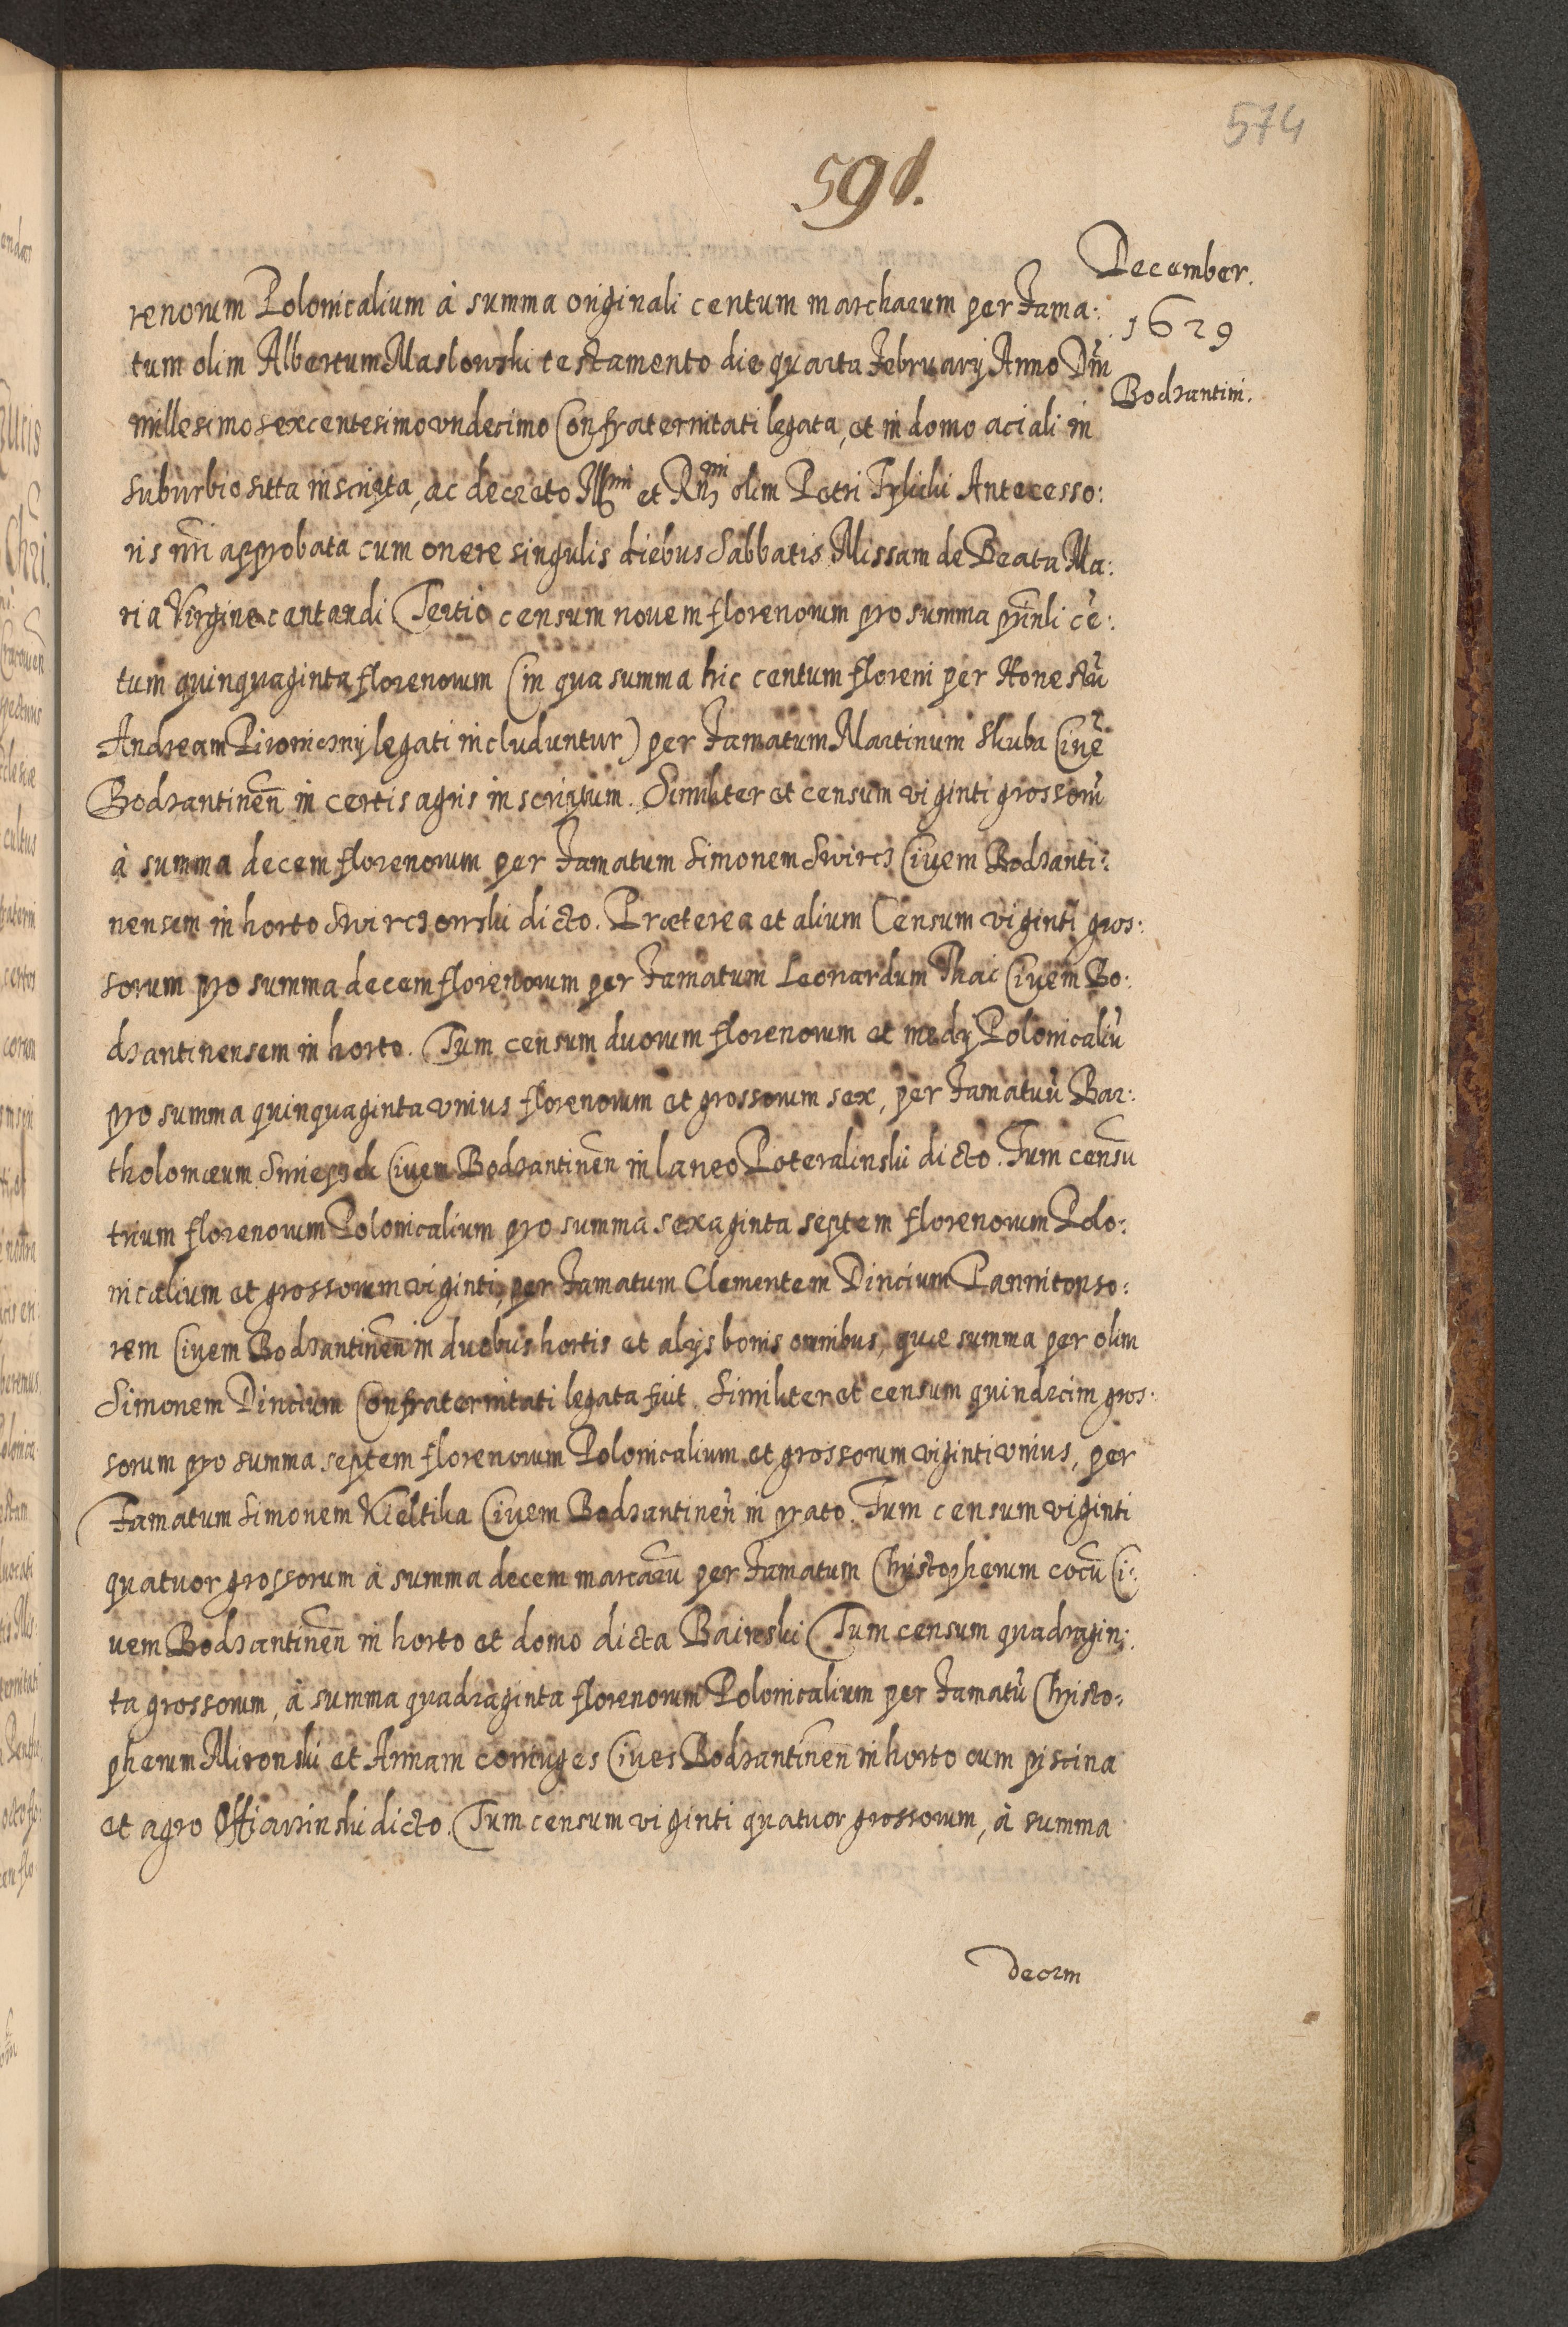 574
591.
December.
1629
Bodzantini.
renorum Polonicalium à summa originali centum marcharum per Fama:
tum olim Albertum Maslowski testamento die quarta February Anno Dni
millesimo sexcentesimo vndecimo Confraternitati legata, et in domo aciali in
suburbio sitta inscripta, ac decreto Illmi et Rmi olim Petri Tylicki Antecesso:
ris nri approbata cum onere singulis diebus Sabbatis Missam de Beata Ma:
ria Virgine cantandi Tertio censum nouem florenorum pro summa prinli cē:
tum quinquaginta florenorum (in qua summa hic centum floreni per Honestū
Andream Piwoniczny legati includuntur) per Famatum Martinum Skuba Ciuē
Bodzantinen̄ in certis agris inscriptum. Similiter et censum viginti grossorū
à summa decem florenorum per Famatum Simonem Swircz Ciuem Bodzanti:
nensem in horto Swirczowski dicto. Præterea et alium Censum viginti gros:
sorum pro summa decem florenorum per Famatum Leonardum Thac Ciuem Bo:
dzantinensem in horto. Tum censum duorum florenorum et medy Polonicaliū
pro summa quinquaginta vnius florenorum et grossorum sex, per Famatuū Bar:
tholomæum Ciuem Bodzantinen̄ in laneo Poteralinski dicto. Tum censū
trium florenorum Polonicalium pro summa sexaginta septem florenorum Polo:
nicalium et grossorum viginti, per Famatum Clementem Dincium Pannitonso:
rem Ciuem Bodzantinen̄ in duobus hortis et alys bonis omnibus, quæ summa per olim
Simonem Dincium Confraternitati legata fuit. Similiter et censum quindecim gros:
sorum pro summa septem florenorum Polonicalium et grossorum viginti vnius, per
Famatum Simonem Kieltika Ciuem Bodzantinen̄ in prato. Tum censum viginti
quatuor grossorum à summa decem marcarū per Famatum Christopherum cocū Ci:
uem Bodzantinen̄ in horto et domo dicta Bainski Tum censum quadragin:
ta grossorum, à summa quadraginta florenorum Polonicalium per Famatū Christo:
pherum Mironski et Annam coniuges Ciues Bodzantinen̄ in horto cum piscina
et agro Offiarzinski dicto. Tum censum viginti quatuor grossorum, à summa
decem